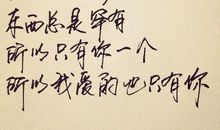 东西总是罕有
所以只有你一个
所以我爱的也只有你